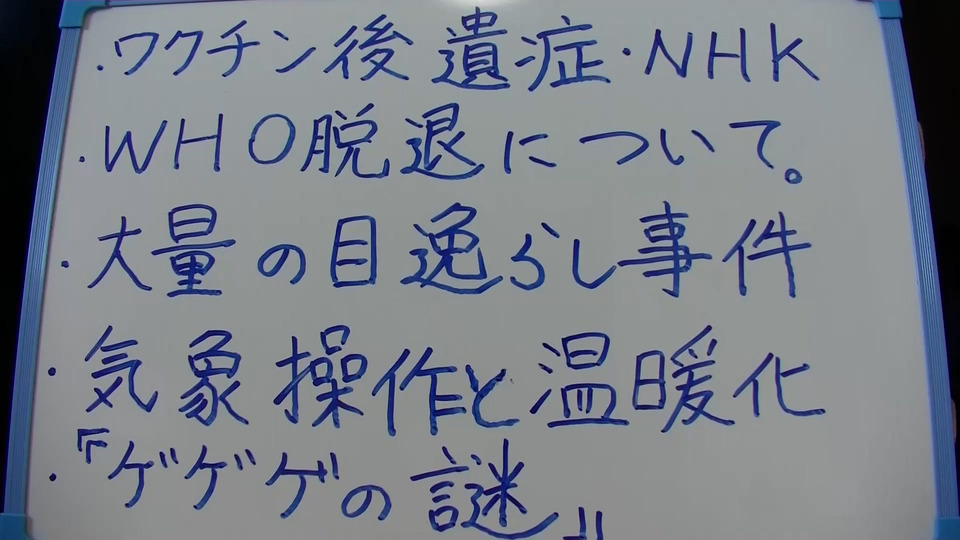 ・ワクチン後遺症・NHK
・WHO脱退について。
・大量の目逸らし事件
・気象操作と温暖化
・『ゲゲゲの謎』